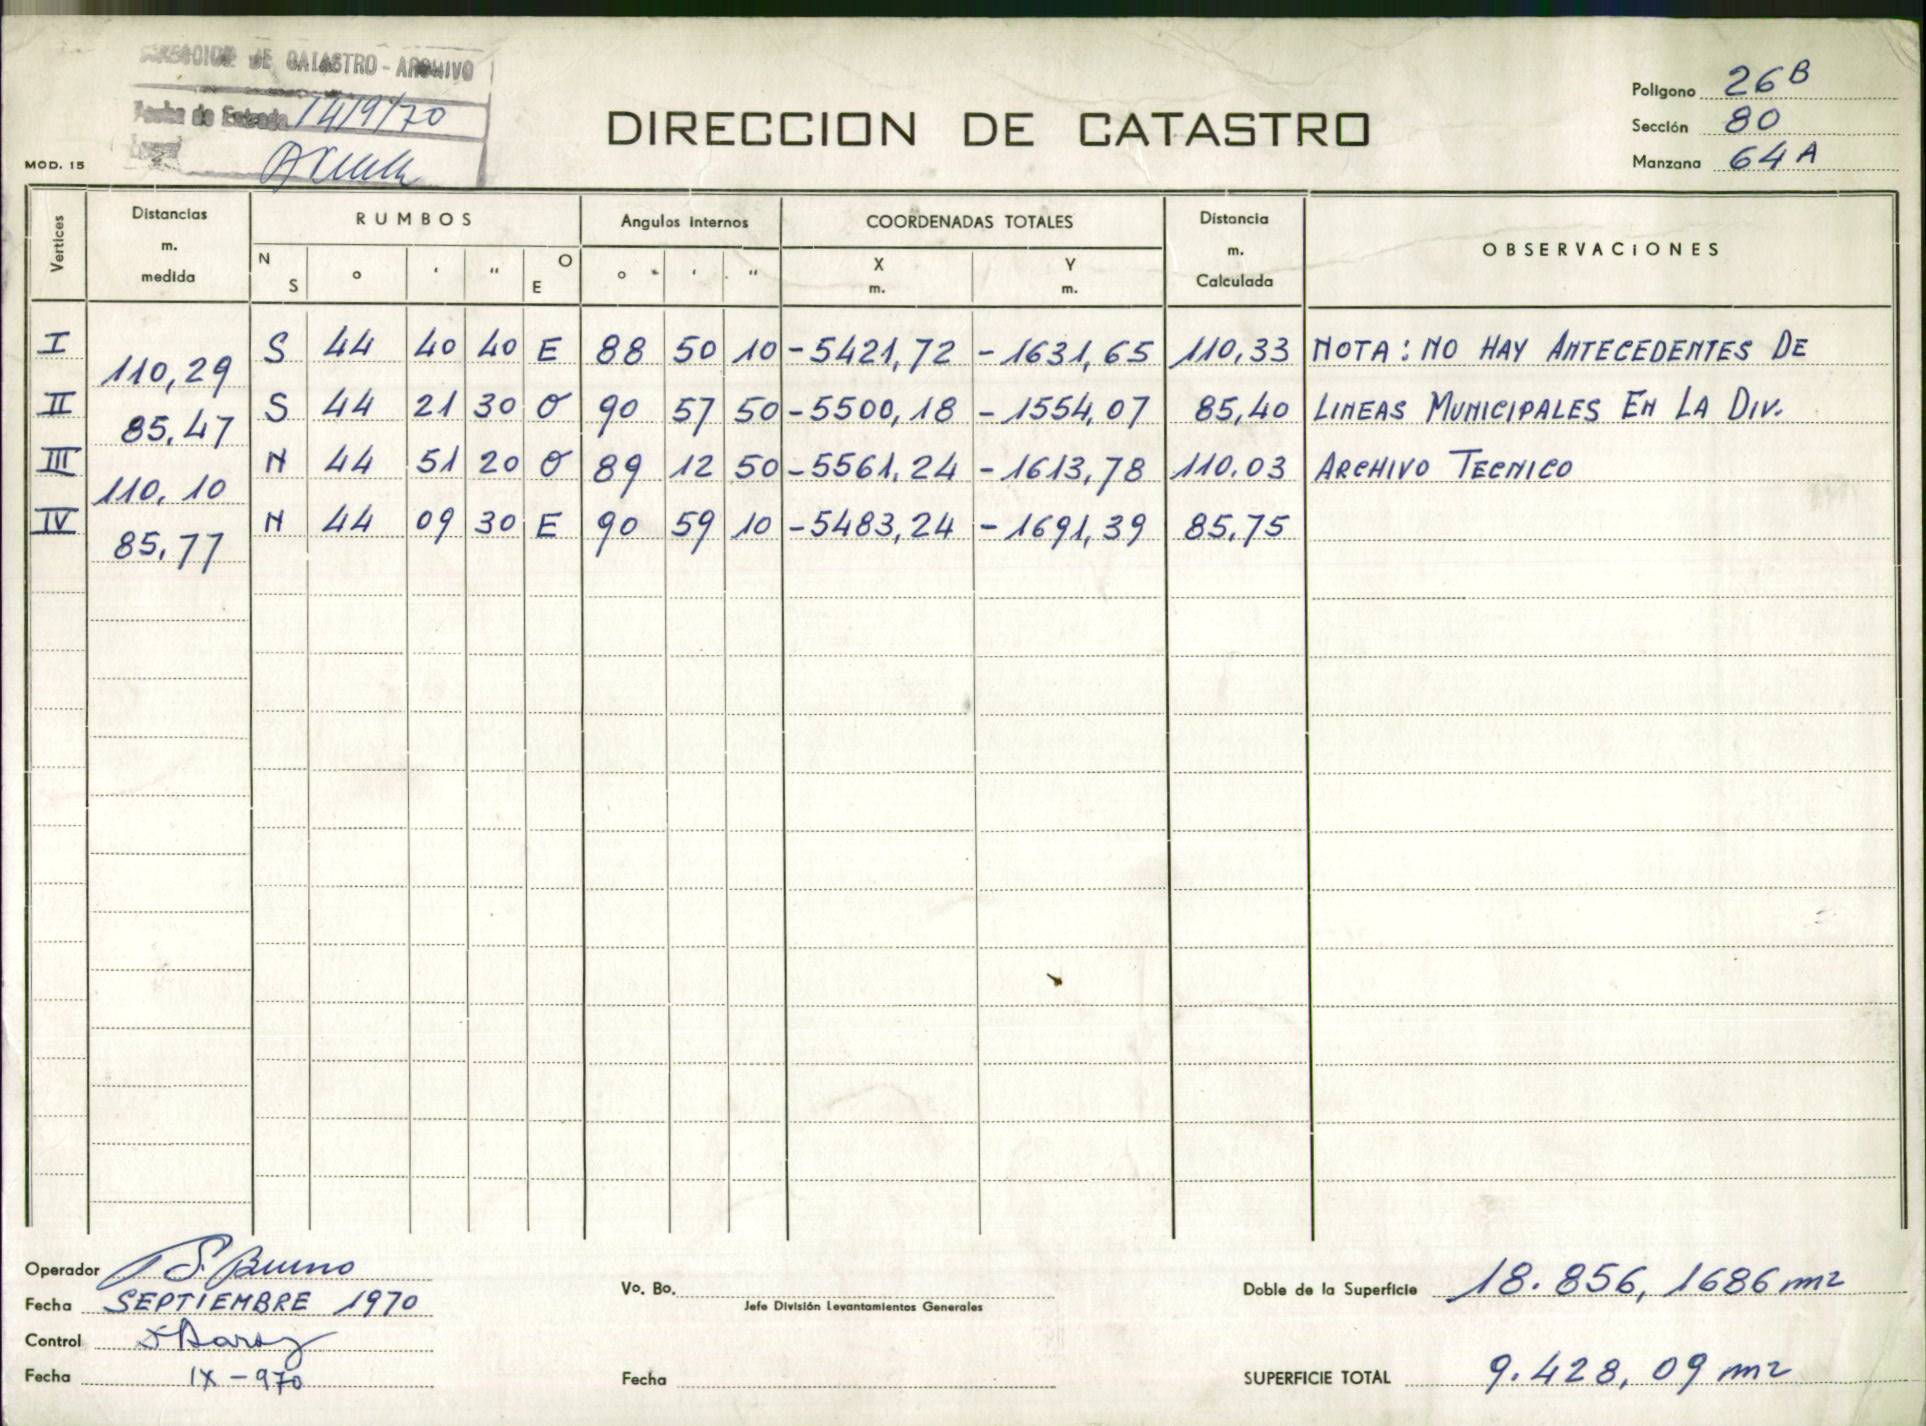 DIRECCION DE CATASTRO - ARCHIVO
Fecha de Entrada 14/9/70
DIRECCION DE CATASTRO
Poligono 26 B
Sección 80
Manzana 64 A
MOD. 15
Vertices
Distancias m. medida
RUMBOS
Angulos internos
COORDENADAS TOTALES
Distancia m. Calculada
OBSERVACiONES
N S ° ' " O E
° ' "
X m.
Y m.
I 110,29 S 44 40 40 E 88 50 10 -5421,72 -1631,65 110,33 NOTA: NO HAY ANTECEDENTES DE
II 85,47 S 44 21 30 O 90 57 50 -5500,18 -1554,07 85,40 LINEAS MUNICIPALES EN LA DIV.
III 110,10 N 44 51 20 O 89 12 50 -5561,24 -1613,78 110.03 ARCHIVO TECNICO
IV 85,77 N 44 09 30 E 90 59 10 -5483,24 -1691,39 85,75
Operador S. Bueno
Fecha SEPTIEMBRE 1970
Control
Fecha IX-970
Vo. Bo.
Jefe División Levantamientos Generales
Fecha
Doble de la Superficie 18.856,1686 m2
SUPERFICIE TOTAL 9.428,09 m2